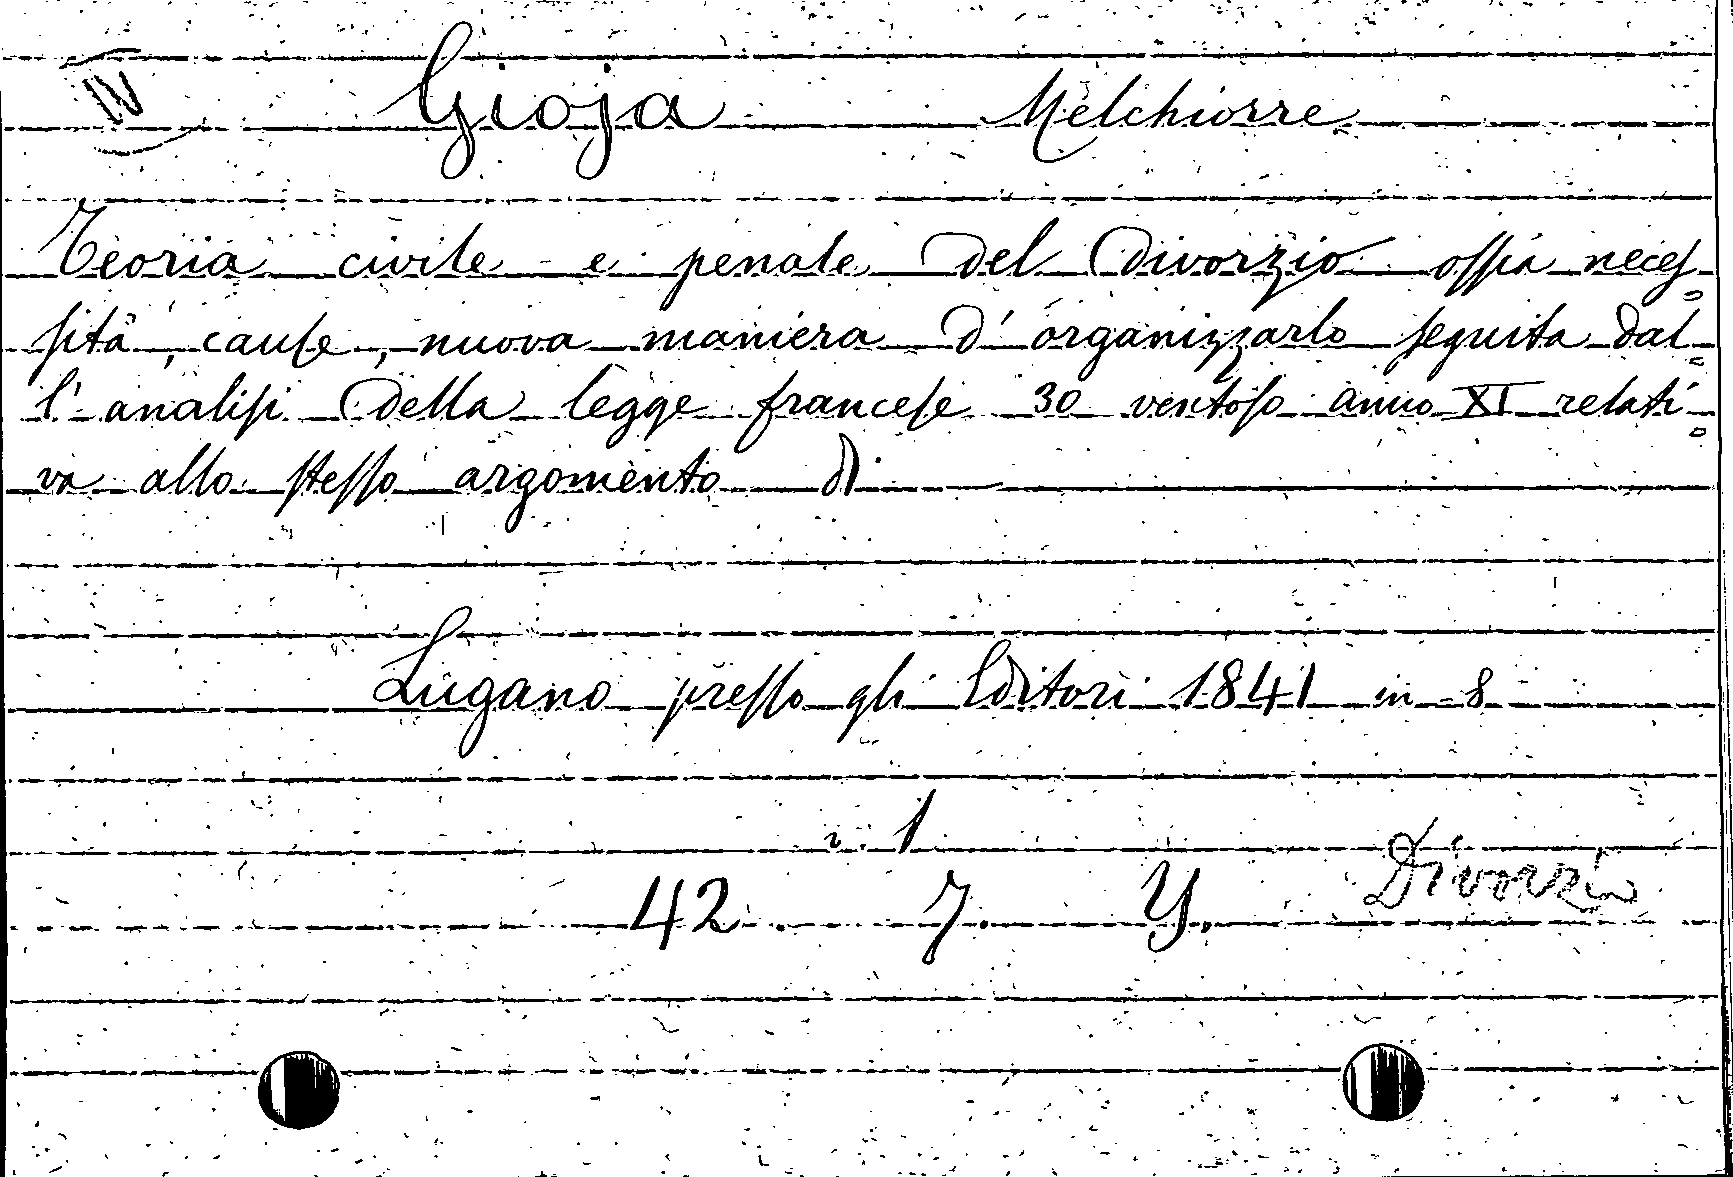 IV Gioja Melchiorre
Teoria civile e penale del Divorzio ossia neces=
sità, cause, nuova maniera d'organizzarlo seguita dal=
l'analisi della legge francese 30 ventoso anno XI relati=
va allo stesso argomento di
Lugano presso gli Editori 1841 in 8
n. 1
42. 7. Y. Divorzio